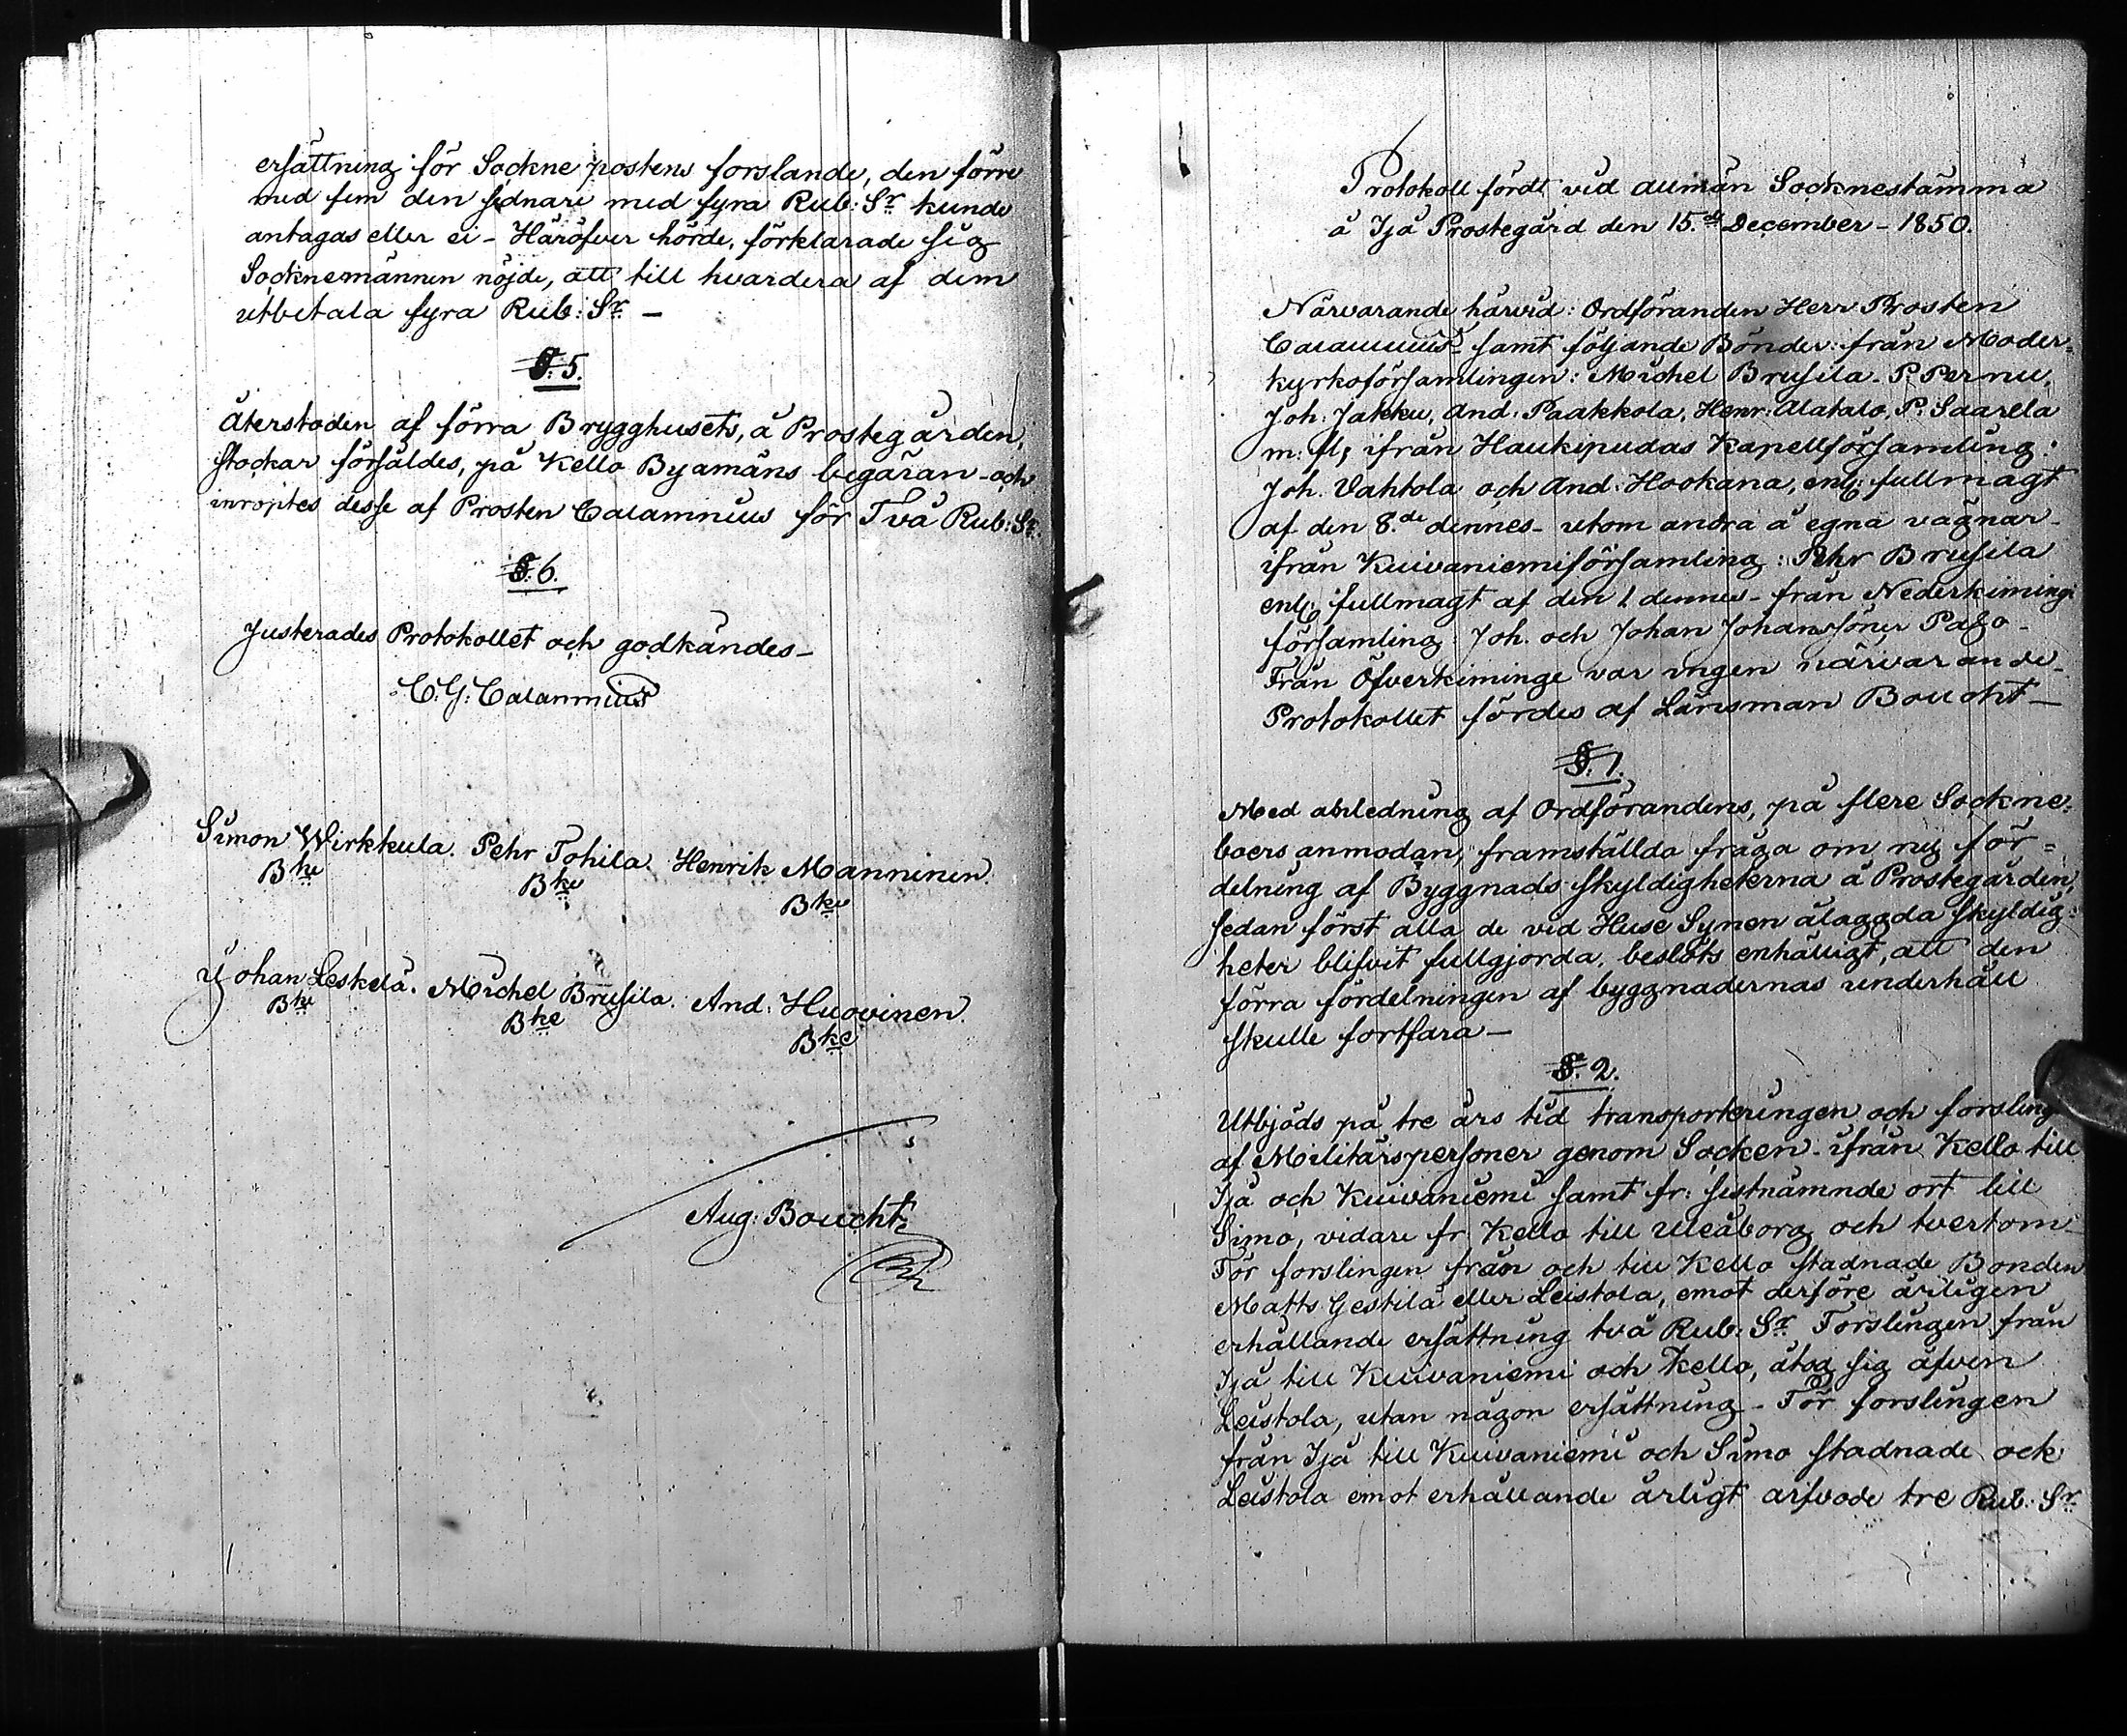 ersättning för Sockne postens forslande, den förre
med fem den sednare med fyra Rub: Sr kunde
antagas eller ei - Häröfver hörde, förklarade sig
Socknemännen nöjde, att till hvardera af dem
utbetala fyra Rub: Sr. —
§. 5.
Återstoden af förra Brygghusets, å Prostegården,
stockar försåldes, på Kello Byamäns begäran - och
inroptes desse af Prosten Calamnius för Två Rub: Sr.
§. 6.
Justerades Protokollet och godkändes -
C. G. Calamnius
Simon Wirkkula. Pehr Tohila. Henrik Manninen.
Bke Bke Bke
Johan Leskelä. Michel Brusila. And: Huovinen.
Bke Bke Bke
Aug: Boucht
Protokoll fördt vid allmän Socknestämma
å Ijå Prostegård den 15.de December - 1850.
Närvarande härvid: Ordföranden Herr Prosten
Calamnius - samt följande Bönder: från Moder=
kyrkoförsamlingen: Michel Brusila - P. Pernu,
Joh: Jakku, And: Paakkola, Henr: Alatalo, P. Saarela
m: fl; ifrån Haukipudas Kapellförsamling:
Joh. Vahtola och And: Hookana, enl: fullmagt
af den 8.de dennes - utom andra å egna vägnar -
ifrån Kuivaniemi församling: Pehr Brusila
enl: fullmagt af den 1 dennes - från Nederkiminge
församling: Joh. och Johan Johanssöner Paso -
Från Öfverkiminge var ingen närvarande -
Protokollet fördes af Länsman Boucht —
§. 1.
Med anledning af Ordförandens, på flere Sockne=
boers anmodan, framställda fråga om ny för=
delning af Byggnads skyldigheterna å Prostegården,
sedan först alla de vid Huse Synen ålaggda skyldig=
heter blifvit fullgjorda, beslöts enhälligt, att den
förra fördelningen af byggnadernas underhåll
skulle fortfara —
§. 2.
Utbjöds på tre års tid transporteringen och forsling
af Militärspersoner genom Socken - ifrån Kello till
Ijå och Kuivaniemi samt fr: sistnämnde ort till
Simo, vidare fr Kello till Uleåborg och tvertom -
För forslingen från och till Kello stadnade Bonden
Matts Gestilä eller Leistola, emot derföre årligen
erhållande ersättning två Rub: Sr. Forslingen från
Ijå till Kuivaniemi och Kello, åtog sig äfven
Leistola, utan någon ersättning - För forslingen
från Ijå till Kuivaniemi och Simo stadnade ock
Leistola emot erhållande årligt arfvode tre Rub: Sr